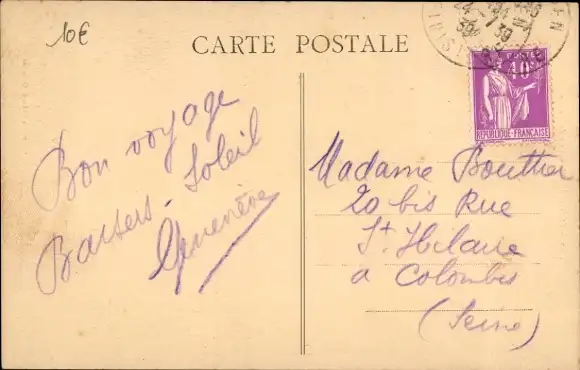 10€
CARTE POSTALE
POSTES
40c
REPUBLIQUE-FRANÇAISE
Bon voyage
Baisers. Soleil
Geneviève
Madame Bouthier
20 bis Rue
St. Hilaire
a Colombes
(Seine)